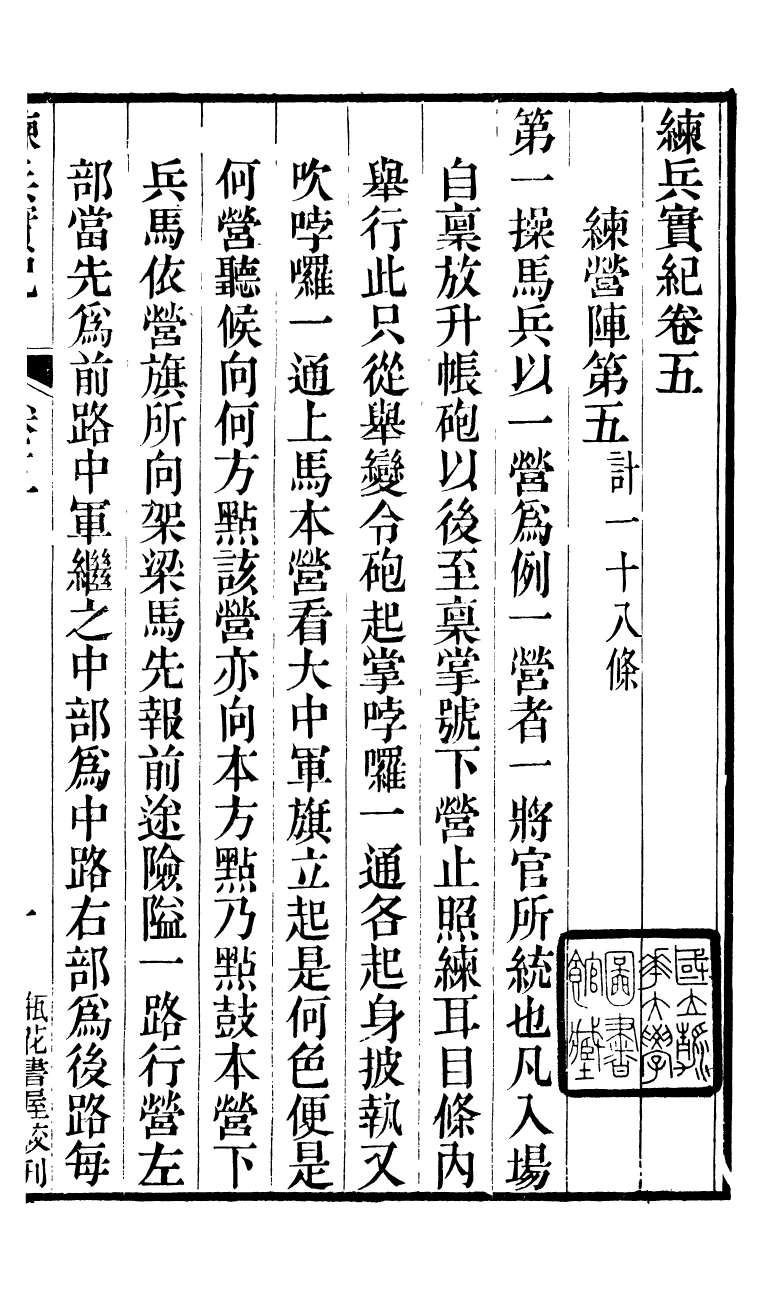 練兵實紀卷五
練營陣第五計一十八條
第一操馬兵以一營爲例一營者一將官所統也凡入場
自稟放升帳砲以後至稟掌號下營止照練耳目條內
舉行此只從舉變令砲起掌哱囉一通各起身披執又
吹哱囉一通上馬本營看大中軍旗立起是何色便是
何營聽候向何方點該營亦向本方點乃點鼓本營下
兵馬依營旗所向架梁馬先報前途險隘一路行營左
部當先爲前路中軍繼之中部爲中路右部爲後路每
練兵實紀
卷五
一
瓶花書屋校刊
國立北平大學圖書館藏